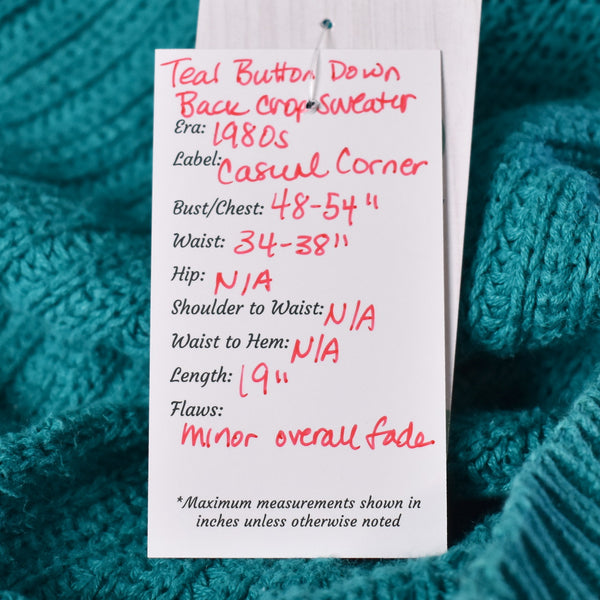 Teal Button Down
Back Crop Sweater
Era: 1980s
Label: Casual Corner
Bust/Chest: 48-54"
Waist: 34-38"
Hip: N/A
Shoulder to Waist: N/A
Waist to Hem: N/A
Length: 19"
Flaws:
minor overall fade
*Maximum measurements shown in
inches unless otherwise noted